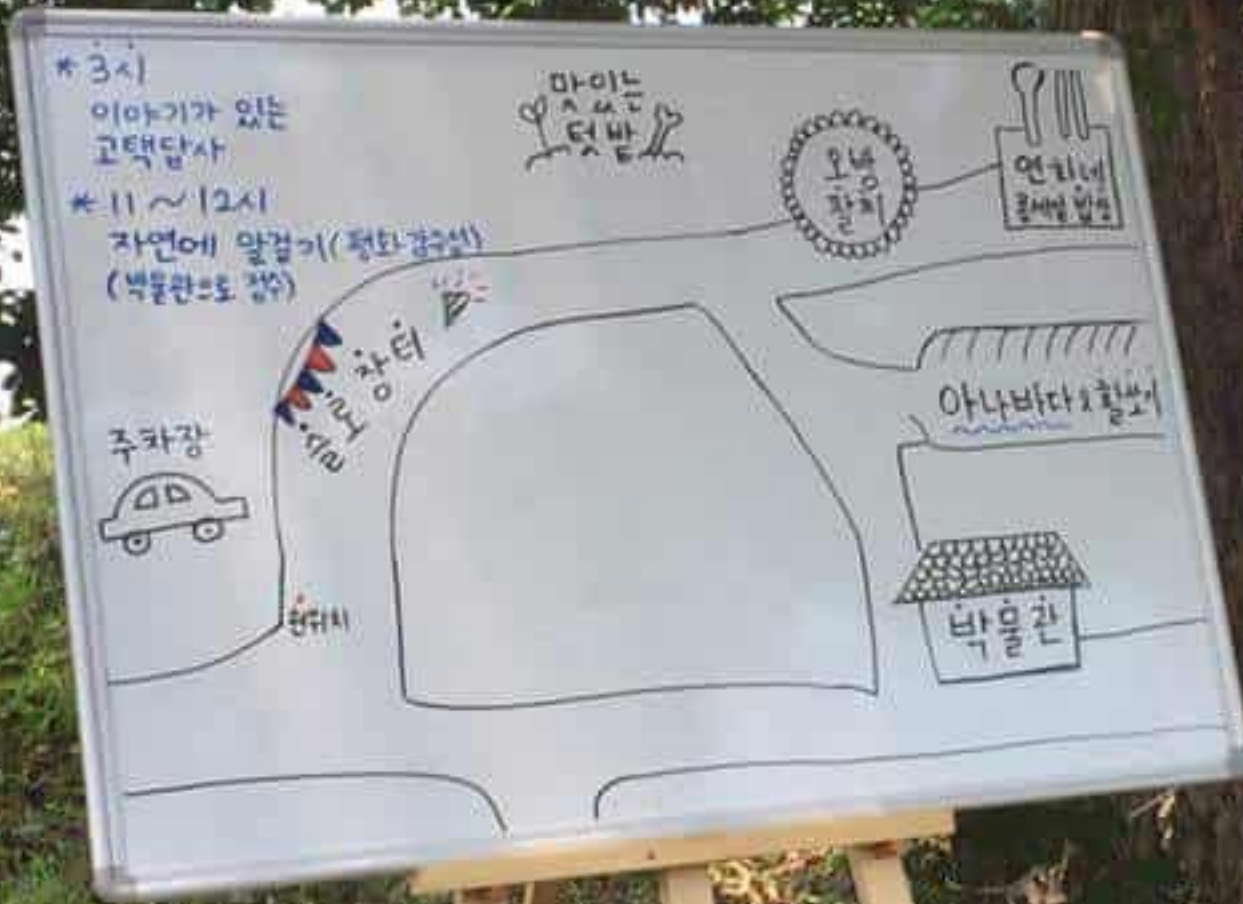 * 3시
이야기가 있는
고택답사
* 11 ~ 12시
자연에 말걸기 (평화감수성)
(박물관으로 접수)
맛있는
텃밭
오방
잘지
연치네
밥상
장터
주차장
현위치
아나바다 & 활쏘기
박물관